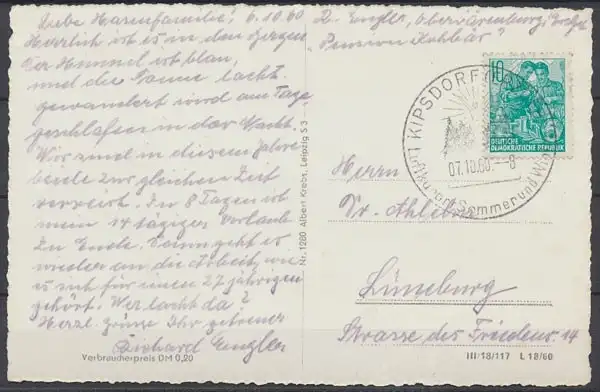 Liebe Hasenfamilie! 6.10.60
Herrlich ist es in den Bergen
Der Himmel ist blau,
und die Sonne lacht.
gewandert wird am Tage
geschlafen in der Nacht.
Wir sind in diesem Jahre
beide zur gleichen Zeit
verreist. In 8 Tagen ist
mein 14 tägiger Urlaub
zu Ende. Dann geht es
wieder an die Arbeit, wie
es sich für einen 27 jährigen
gehört. Wer lacht da?
Herzl. Grüsse Ihr getreuer
Richard Engler
Verbraucherpreis DM 0,20
Nr. 1280 Albert Krebs, Leipzig S 3
R. Engler, Oberbärenburg,
"Pension
10
DEUTSCHE
DEMOKRATISCHE REPUBLIK
KIPSDORF
07.10.60.--8
Luftkurort Sommer und
Herrn
Dr.
Lüneburg
Strasse des Friedens 14
III/18/117 L 18/60